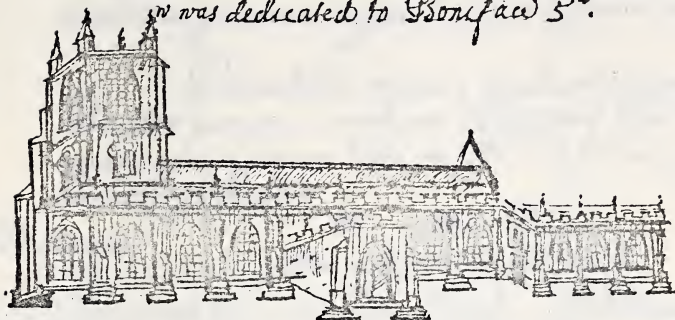 was dedicated to Boniface 5th.